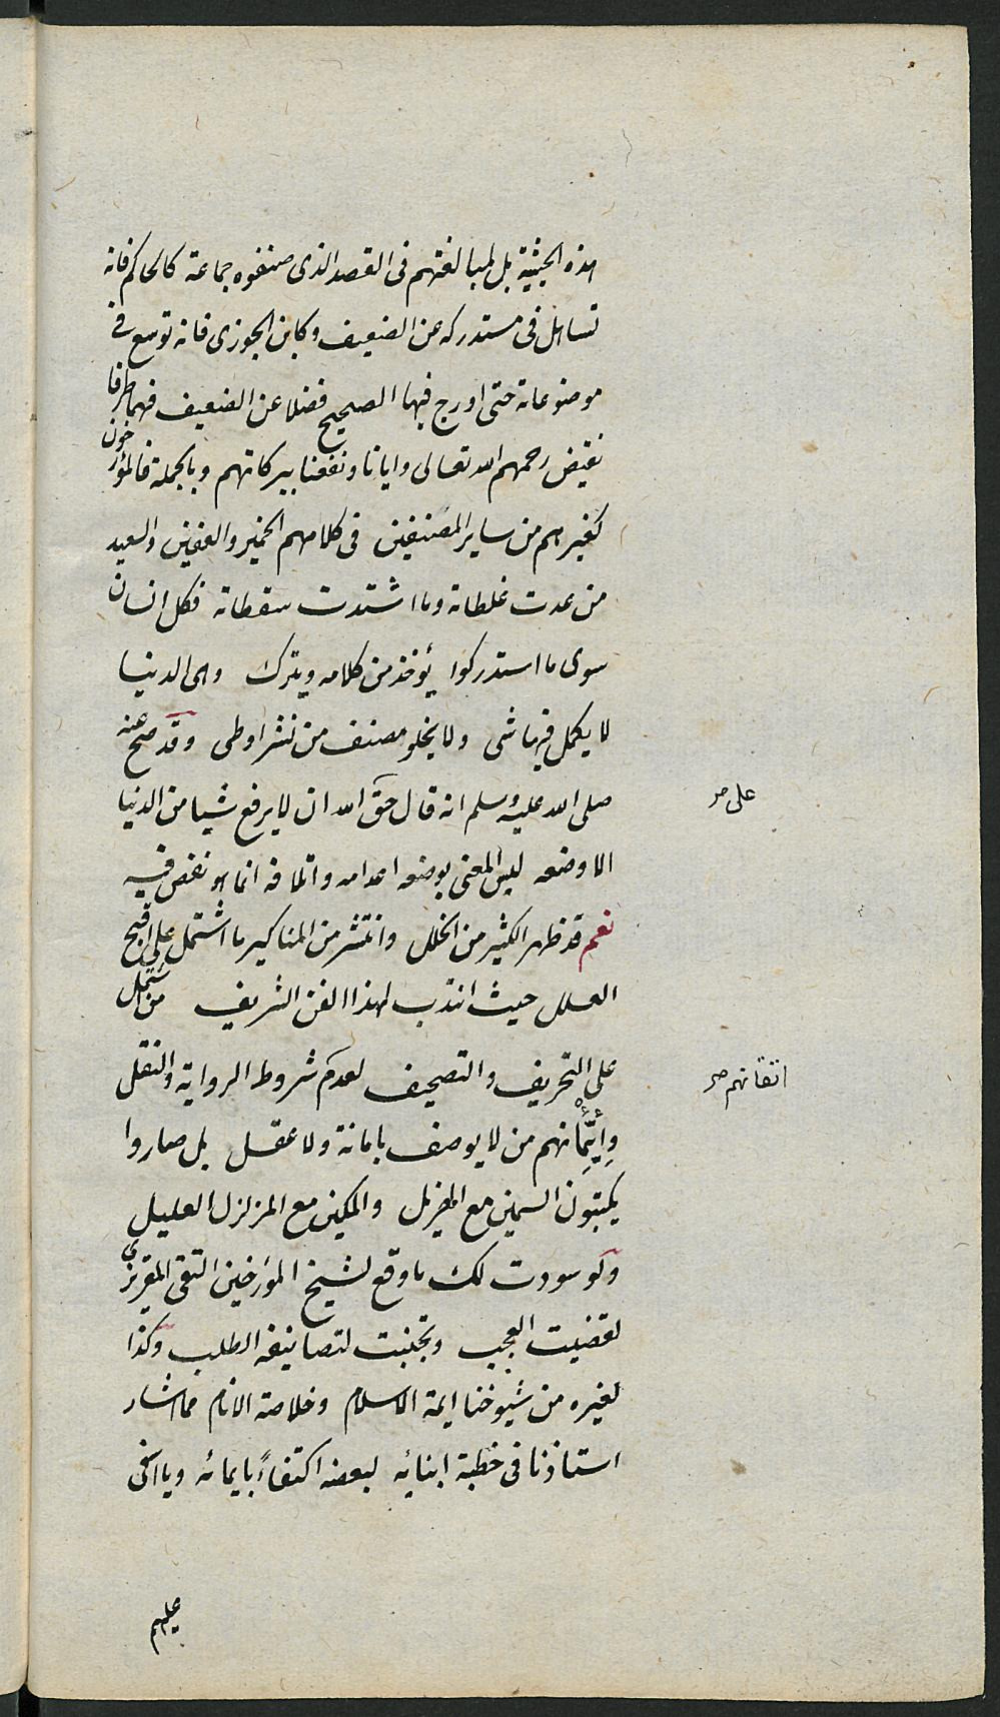 هذه الحيثية بل لمبالغتهم فى القصد الذى صنفوه جماعة كالحاكم فانه
تساهل فى مستدركه عن الضعيف وكابن الجوزى فانه توسع فى
موضوعاته حتى اورج فيها الصحيح فضلا عن الضعيف فهما طرفا
نقيض رحمهم الله تعالى وايانا ونفعنا ببركاتهم وبالجملة فالمؤرخون
كغيرهم من ساير المصنفين فى كلامهم الخمير والعفين والسعيد
من عدت غلطاته وما اشتدت سقطاته فكل انسان
سوى ما استدركوا يؤخذ من كلامه ويترك وهى الدنيا
لا يكمل فيها شى ولا يخلو مصنف من نشر اوطى وقد صح عنه
صلى الله عليه وسلم انه قال حق الله ان لا يرفع شيا من الدنيا
على صر
الا وضعه ليس المعنى بوضعه اعدامه واتلافه انما هو نغص فيه
نعم قد ظهر الكثير من الخلل وانتشر من المناكير ما اشتمل على اقبح
العلل حيث انتدب لهذا الفن الشريف من اشتمل
على التحريف والتصحيف لعدم شروط الرواية والنقل
اتقانهم صر
وائتمانهم من لا يوصف بامانة ولا عقل بل صاروا
يكتبون السمين مع الهزيل والمكين مع المزلزل العليل
ولو سودت لك ما وقع لشيخ المؤرخين التقى المقريزى
لقضيت العجب وتجنبت لتصانيفه الطلب وكذا
لغيره من شيوخنا ايمة الاسلام وخلاصة الانام مما اشار
استاذنا فى خطبة ابنائه لبعضه اكتفاءً بايمائه ويااسفى
عليهم